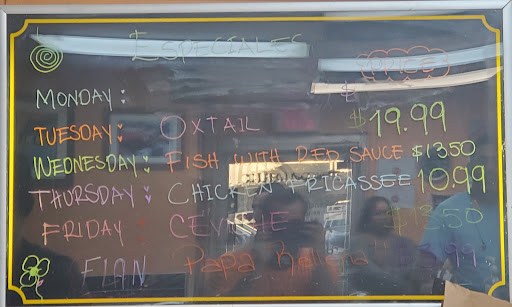 ESPECIALES PRICE
MONDAY: $
TUESDAY: OXTAIL $19.99
WEDNESDAY: FISH WITH RED SAUCE $13.50
THURSDAY: CHICKEN FRICASSEE 10.99
FRIDAY: CEVICHE $13.50
FLAN Papa Rellena